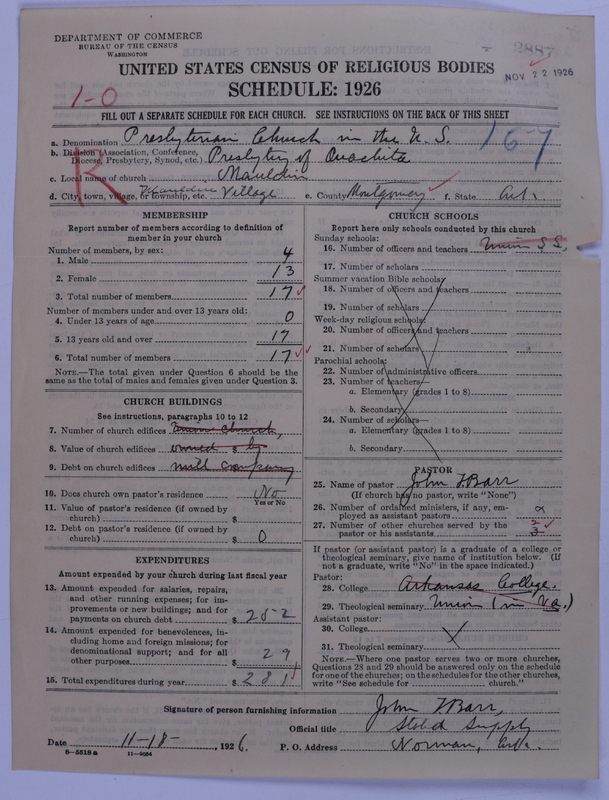 DEPARTMENT OF COMMERCE
BUREAU OF THE CENSUS
WASHINGTON
2887
NOV 22 1926
UNITED STATES CENSUS OF RELIGIOUS BODIES
SCHEDULE: 1926
1-0
FILL OUT A SEPARATE SCHEDULE FOR EACH CHURCH. SEE INSTRUCTIONS ON THE BACK OF THIS SHEET
a. Denomination Presbyterian Church in the U. S. 167
b. Division (Association, Conference, Diocese, Presbytery, Synod, etc.) Presbytery of Ouachita
R
c. Local name of church Mauldin
d. City, town, village, or township, etc. Mauldin Village e. County Montgomery f. State Ark.
MEMBERSHIP
Report number of members according to definition of
member in your church
Number of members, by sex:
1. Male 4
2. Female 13
3. Total number of members 17
Number of members under and over 13 years old:
4. Under 13 years of age 0
5. 13 years old and over 17
6. Total number of members 17
NOTE.—The total given under Question 6 should be the
same as the total of males and females given under Question 3.
CHURCH BUILDINGS
See instructions, paragraphs 10 to 12
7. Number of church edifices Union Church,
8. Value of church edifices owned $ by
9. Debt on church edifices mill company
10. Does church own pastor's residence No
Yes or No
11. Value of pastor's residence (if owned by
church) $
12. Debt on pastor's residence (if owned by
church) $ 0
EXPENDITURES
Amount expended by your church during last fiscal year
13. Amount expended for salaries, repairs,
and other running expenses; for im-
provements or new buildings; and for
payments on church debt $ 252
14. Amount expended for benevolences, in-
cluding home and foreign missions; for
denominational support; and for all
other purposes $ 29
15. Total expenditures during year $ 281
CHURCH SCHOOLS
Report here only schools conducted by this church
Sunday schools:
16. Number of officers and teachers Union S S.
17. Number of scholars
Summer vacation Bible schools:
18. Number of officers and teachers
19. Number of scholars
Week-day religious schools:
20. Number of officers and teachers
21. Number of scholars
Parochial schools:
22. Number of administrative officers
23. Number of teachers—
a. Elementary (grades 1 to 8)
b. Secondary
24. Number of scholars—
a. Elementary (grades 1 to 8)
b. Secondary
PASTOR
25. Name of pastor John T Barr
(If church has no pastor, write "None")
26. Number of ordained ministers, if any, em-
ployed as assistant pastors
27. Number of other churches served by the
pastor or his assistants 2 3
If pastor (or assistant pastor) is a graduate of a college or
theological seminary, give name of institution below. (If
not a graduate, write "No" in the space indicated.)
Pastor:
28. College Arkansas College.
29. Theological seminary Union (in Va.)
Assistant pastor:
30. College
31. Theological seminary
NOTE.—Where one pastor serves two or more churches,
Questions 28 and 29 should be answered only on the schedule
for one of the churches; on the schedules for the other churches,
write "See schedule for church."
Signature of person furnishing information John T Barr,
Official title Stated Supply
Date 11-18-, 1926. P. O. Address Norman, Ark.
8—5518 a 11—9084